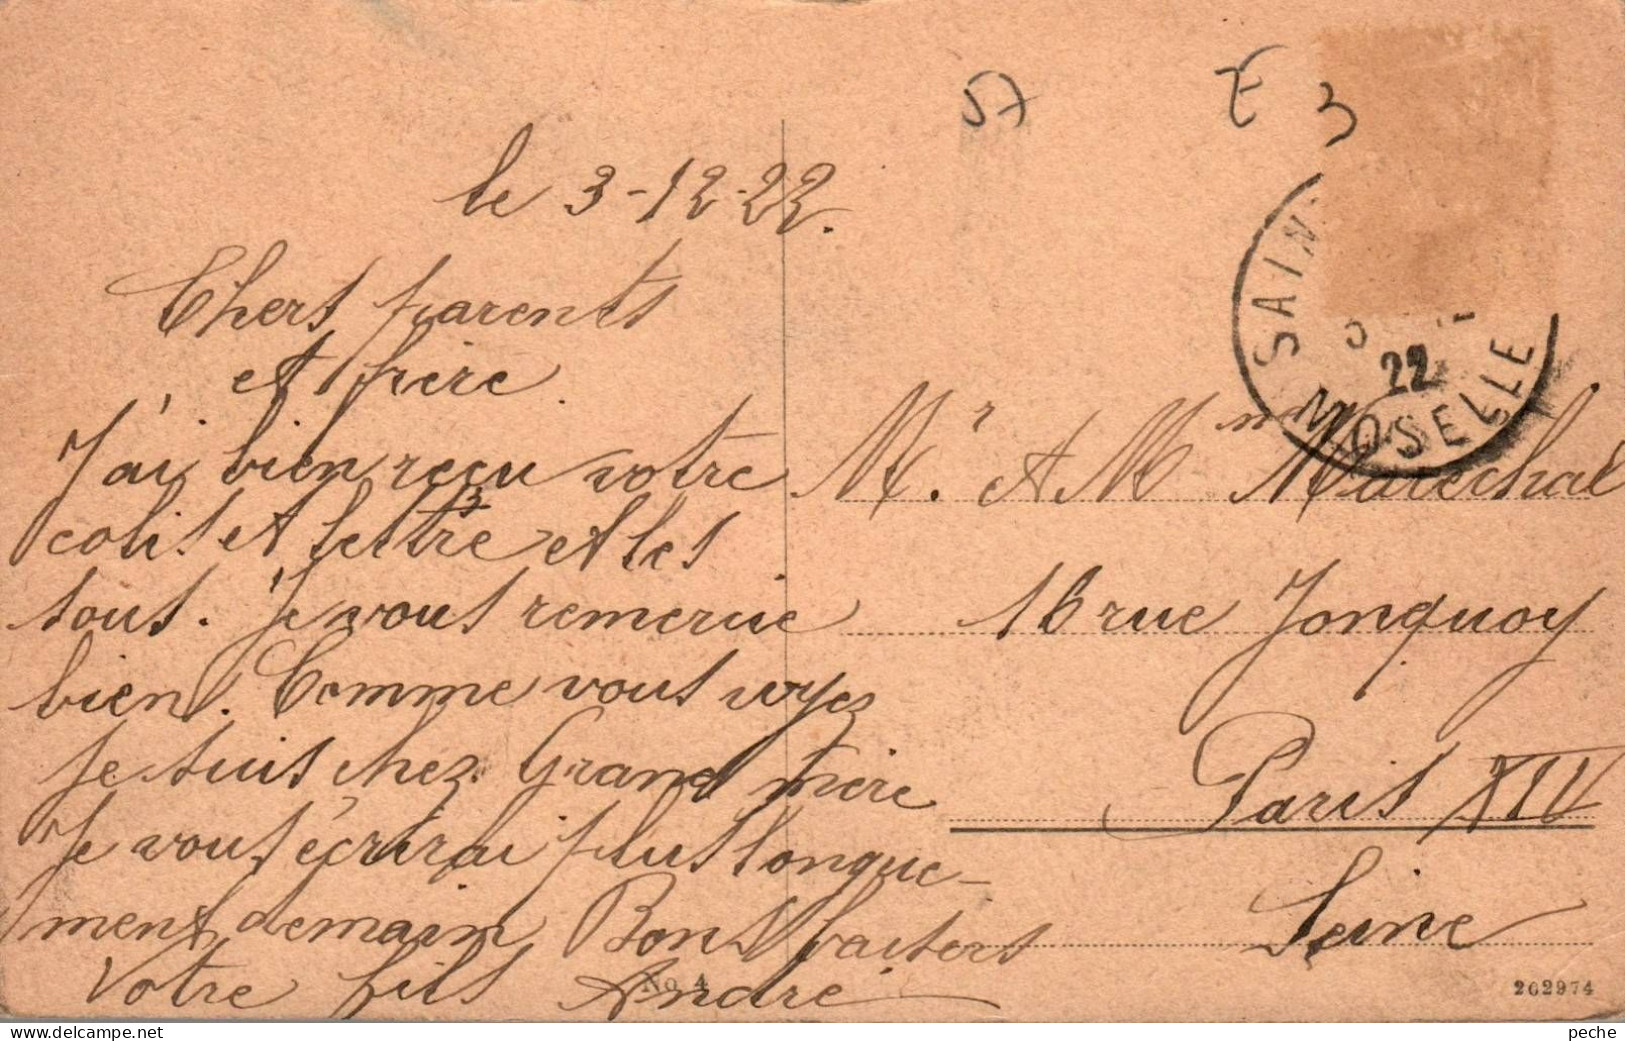 57
E 3
le 3-12-22.
Chers parents
et frère.
J'ai bien reçu votre
colis et lettre et les
sous. Je vous remercie
bien. Comme vous voyez
Je suis chez Grand mère
Je vous écrirai plus longue-
ment demain Bons baisers
Votre fils André
SAIN
3 12
22
MOSELLE
Mr. et Mme Maréchal
16 rue Jonquoy
Paris XIV
Seine
No 4
202974
peche
delcampe.net